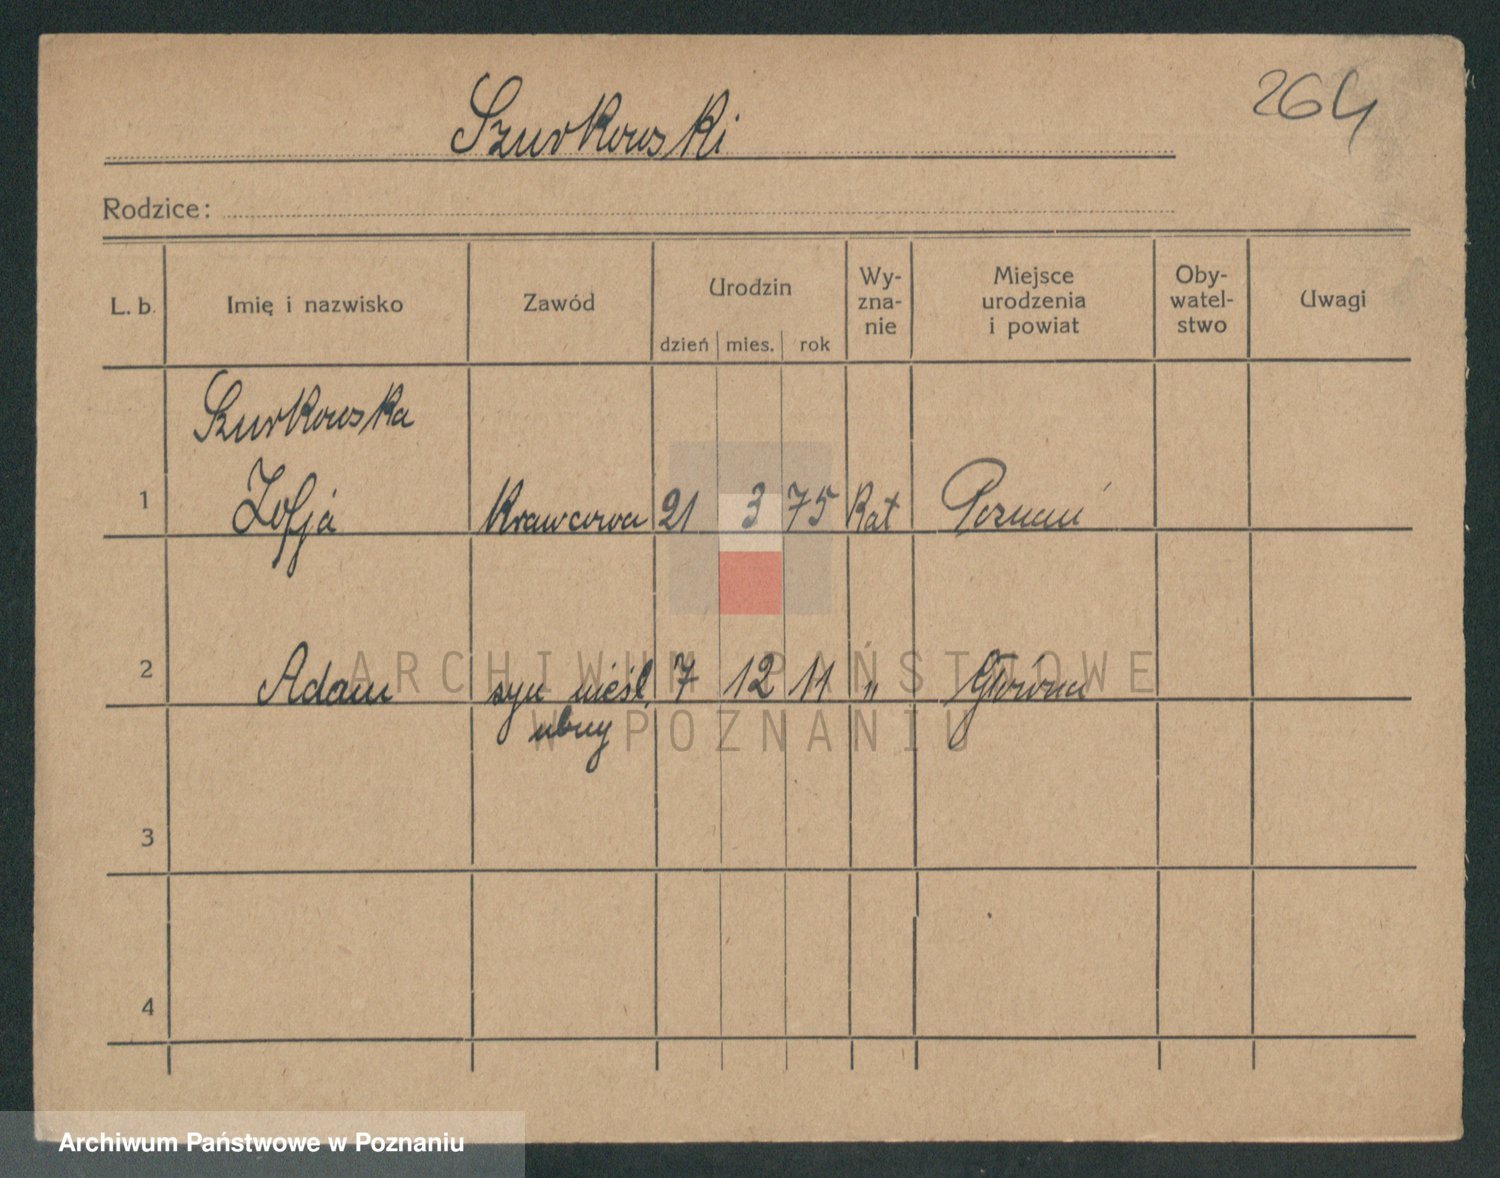 264
Szurkowski
Rodzice:
L. b. Imię i nazwisko Zawód Urodzin dzień mies. rok Wy-zna-nie Miejsce urodzenia i powiat Oby-watel-stwo Uwagi
Szurkowska
1 Zofja Krawcowa 21 3 75 Kat Poznań
2 Adam syn nieśl. 7 12 11 " Główna
ubny
3
4
ARCHIWUM PAŃSTWOWE
W POZNANIU
Archiwum Państwowe w Poznaniu